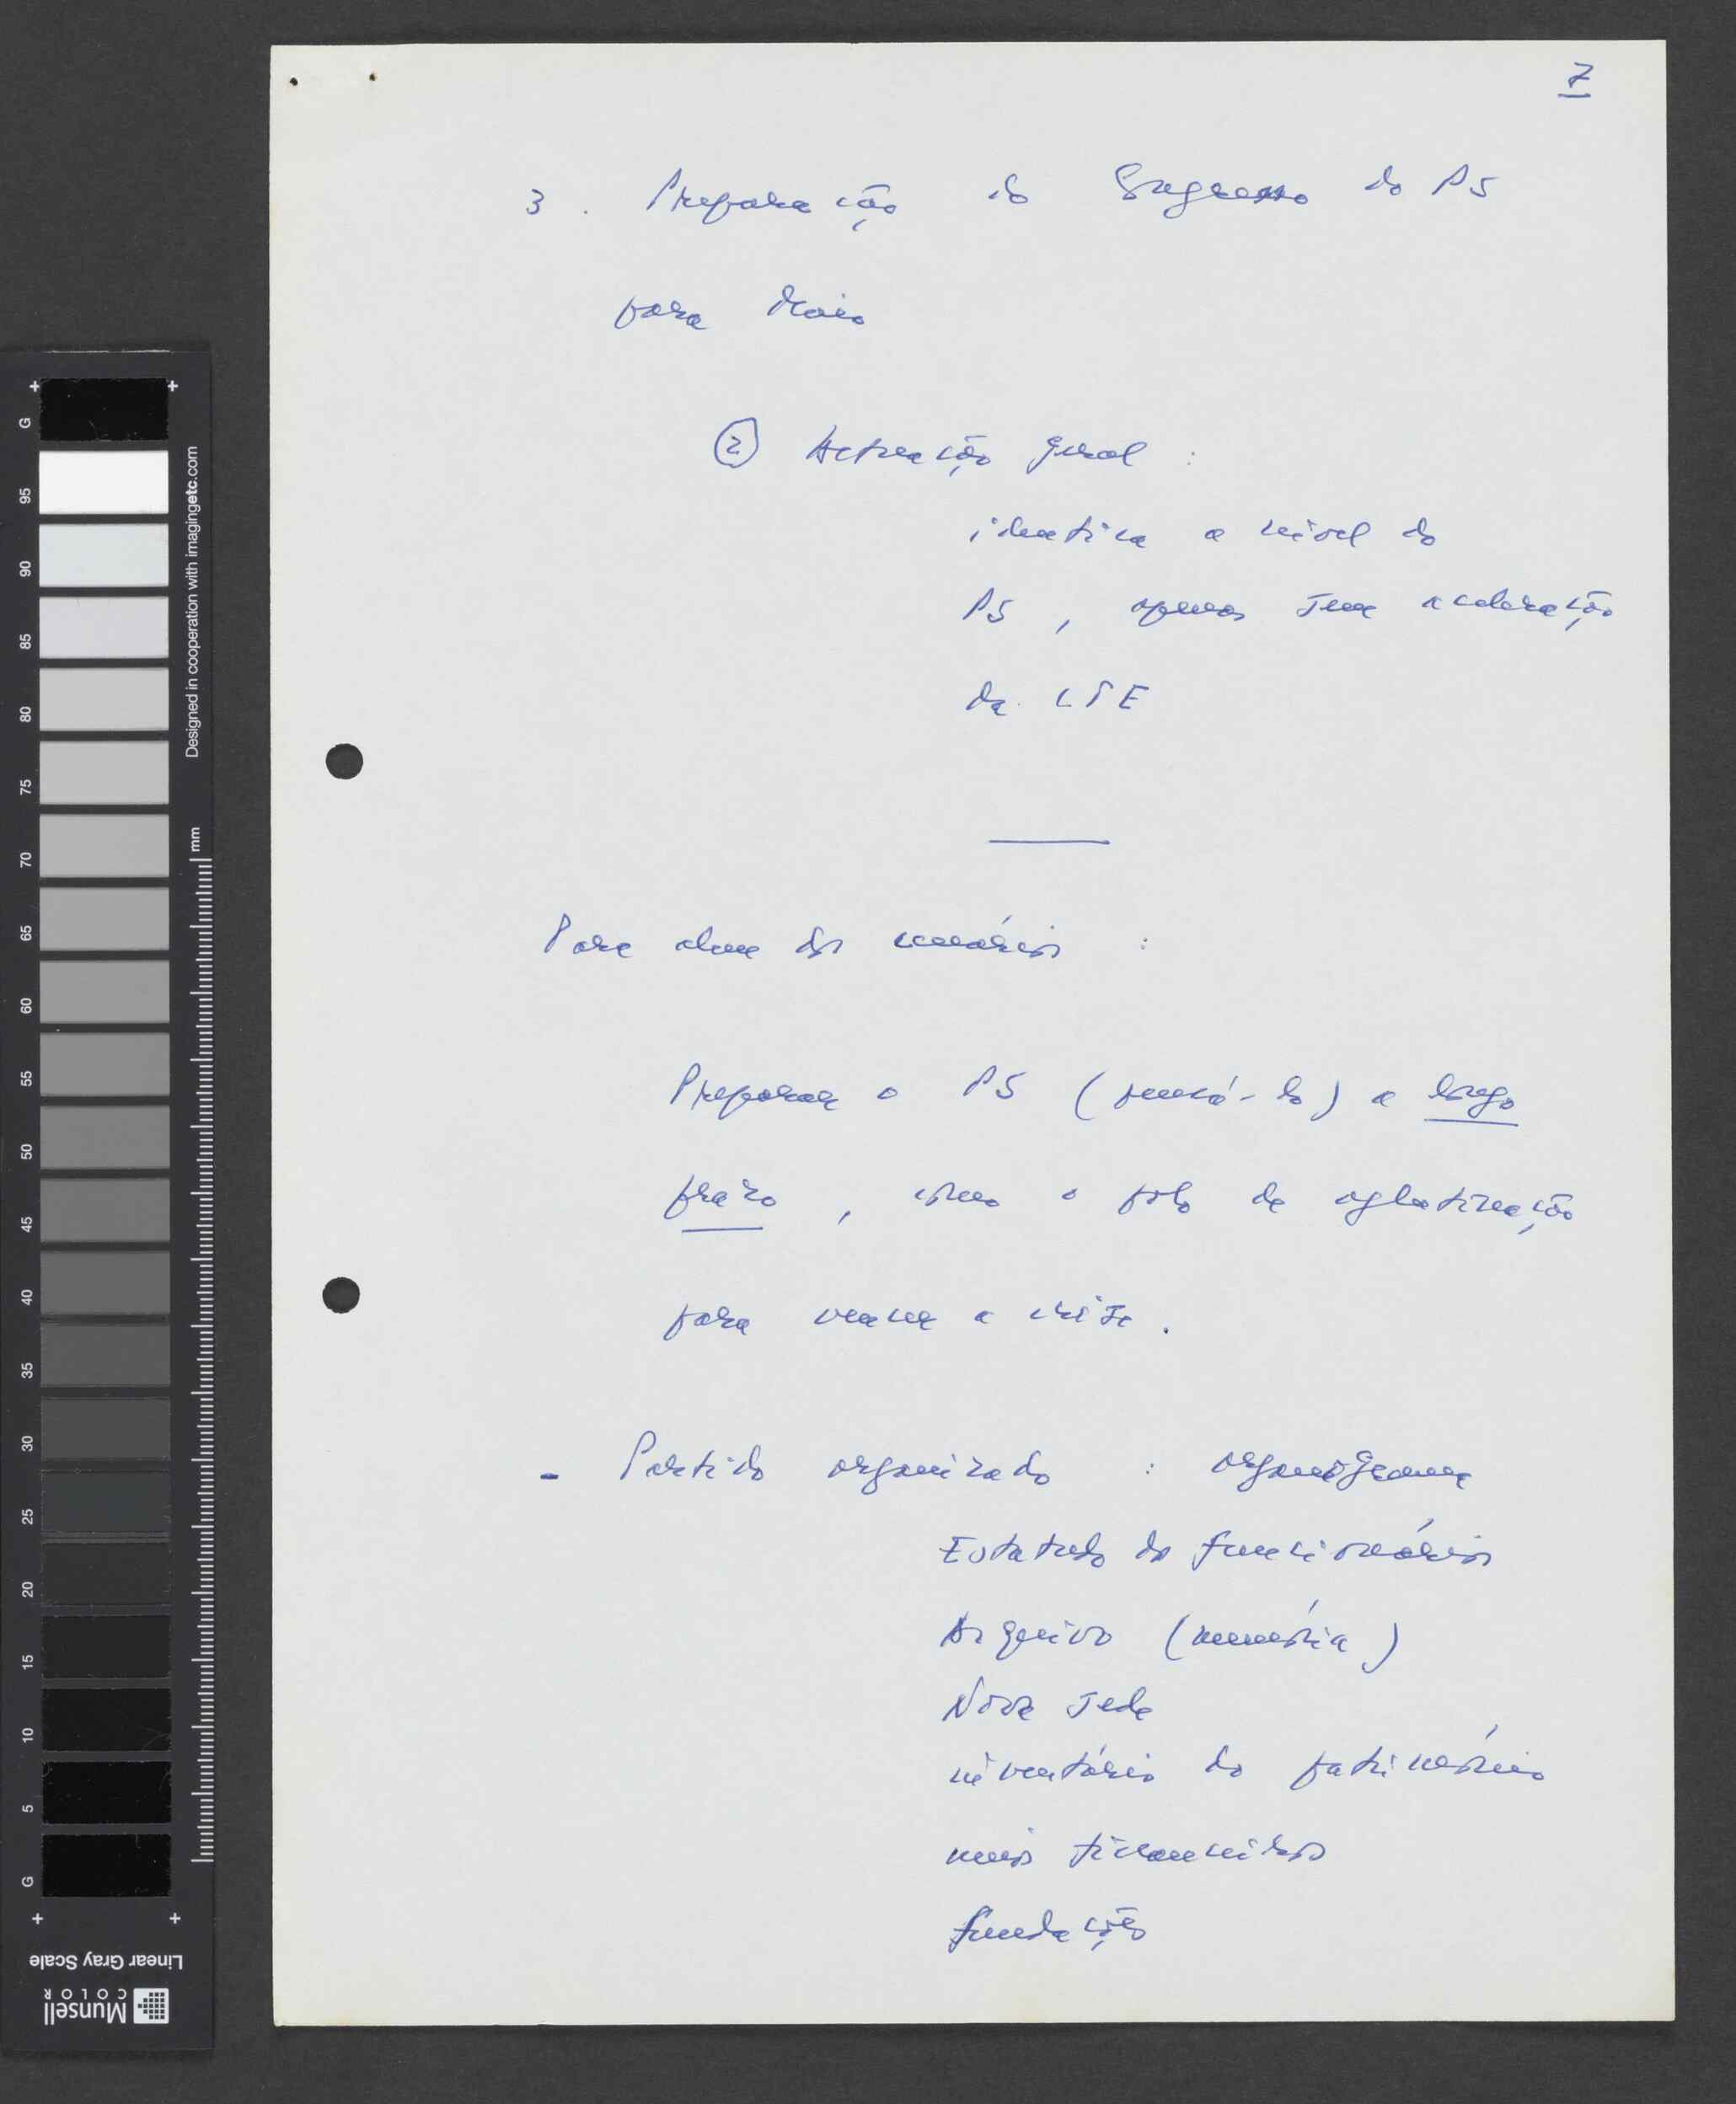 7
3. Preparação do Congresso do PS
para Maio
② Actuação geral :
identica a nivel do
PS, apenas sem aceleração
da
Para alem dos cenários :
Preparar o PS (pensá-lo) a longo
prazo, como o polo de aglutinação
para vencer a crise.
- Partido organizado : organograma
Estatuto do funcionários
Arquivo (memória)
Nova sede
inventário do património
meios financeiros
fundações
G
95
90
85
80
75
70
65
60
55
50
45
40
35
30
25
20
15
10
5
G
Designed in cooperation with imagingetc.com
mm
Linear Gray Scale
Munsell
COLOR